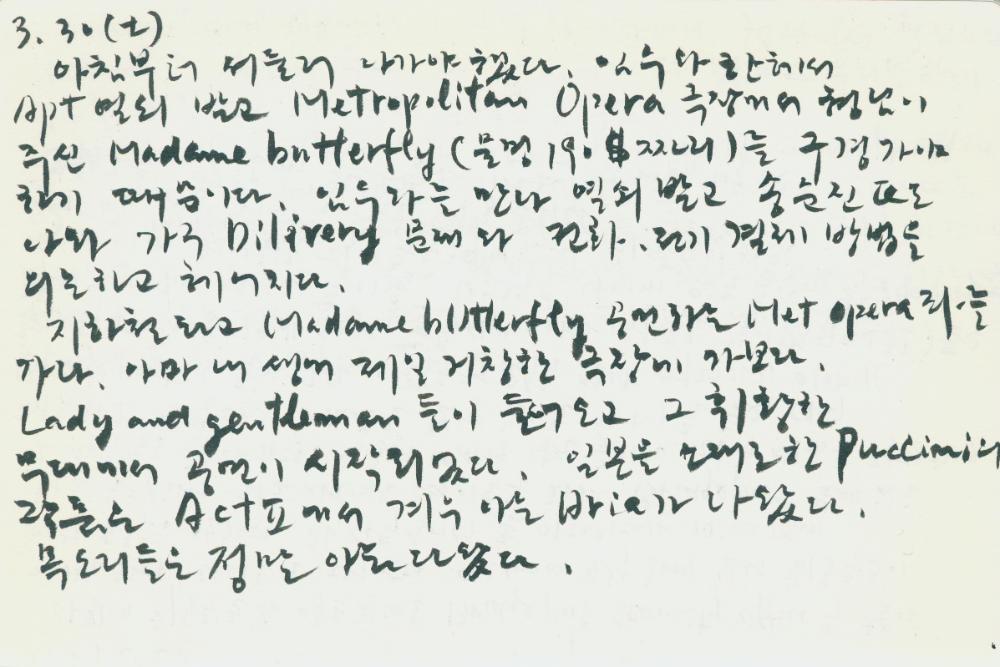 3. 30(土)
아침부터 서둘러 나가야 했다. 임수와 한테서
Apt 열쇠 받고 Metropolitan Opera 극장에서 형님이
주신 Madame butterfly (물경 190$ 짜리)를 구경가야
하기 때문이다. 임수와를 만나 열쇠 받고 송순진 또
나와 가구 Dilivery 문제와 전화, 전기 결제 방법을
의논하고 헤어지다.
지하철 타고 Madame butterfly 공연하는 Met opera 를
가다. 아마 내 생에 제일 거창한 극장에 가보다.
Lady and gentleman 들이 들어오고 그 휘황한
무대에서 공연이 시작되었다. 일본을 소재로한 Puccini의
곡들은 Act II에서 겨우 아는 aria가 나왔다.
목소리들은 정말 아름다웠다.